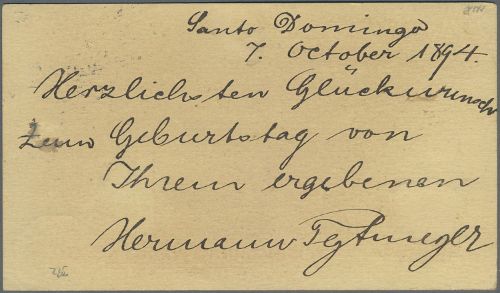 Santo Domingo
7. October 1894.
Herzlichsten Glückwunsch
zum Geburtstag von
Ihrem ergebenen
Hermann